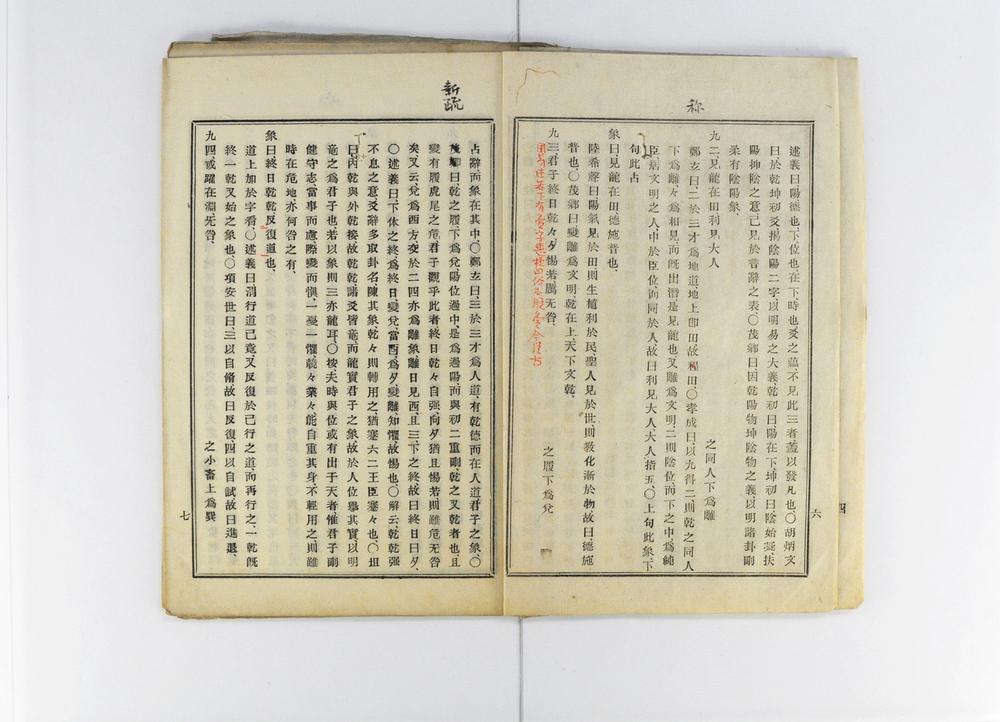 称
述義曰陽德也、下位也在下時也爻之蘊不見此三者蓋以發凡也〇胡炳文
曰於乾坤初爻揚陰陽二字以明易之大義乾初曰陽在下、坤初曰陰始凝、扶
陽抑陰之意已見於言辭之表、〇茂卿曰因乾陽物坤陰物之義、以明諸卦剛
柔有陰陽象、
九二、見龍在田利見大人 之同人下爲離
鄭玄曰二於三才爲地道地上卽田故稱田、〇孝成曰、以九得二、則乾之同人
下爲離々爲相見、而既出潛是見龍也又離爲文明、二則陰位而下之中、爲純
臣炳文明之人、中於臣位而同於人故曰利見大人、大人、指五、〇上句此象、下
句此占
象曰見龍在田德施普也、
陸希聲曰陽氣見於田則生植利於民聖人見於世、則敎化漸於物、故曰德施
普也、〇茂卿曰變離爲文明乾在上、天下文乾、
九三君子終日乾々夕惕若厲无咎、 之履下爲兌
六
四
新疏
占辭而象在其中〇鄭玄曰、三於三才爲人道、有乾德而在人道君子之象、〇
茂卿曰乾之履、下爲兌陽位過中、是爲過陽而與初二重剛、乾之又乾者也、且
變有履虎尾之危、君子觀乎此者終日乾々自强、向夕猶且惕若則雖危无咎
矣又云、兌爲西方、交於二四亦爲離象離日見西、且三、下之終、故曰終日曰夕、
〇述義曰、下体之終、爲終日變兌當酉、爲夕、變離、知懼、故惕也、〇解云、乾乾强
不息之意爻辭多取卦名陳其象乾々則轉用之猶蹇六二王臣蹇々也、〇坦
曰、內乾與外乾接故乾乾諸爻皆竜、而龍實君子之象、故於人位擧其實以明
竜之爲君子也、若以象則三亦龍耳、〇按夫時與位或有出于天者惟君子剛
健守志當事而慮際變而愼、一憂一懼兢々業々、能自重其身不輕用之則雖
時在危地、亦何咎之有、
象曰終日乾乾反復道也、
道上加於字看、〇述義曰謂行道已竟又反復於己行之道、而再行之、一乾既
終一乾又始之象也、〇項安世曰三以自脩故曰反復四以自試故曰進退、
九四、或躍在淵、无咎、 之小畜上爲巽
七